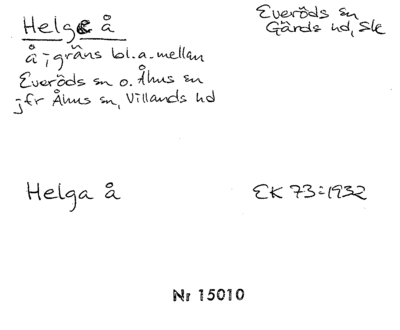 Helge å
Everöds sn
Gärds hd, Sk
å; gräns bl.a. mellan
Everöds sn o. Åhus sn
jfr Åhus sn, Villands hd
Helga å
EK 73: 1932
Nr 15010